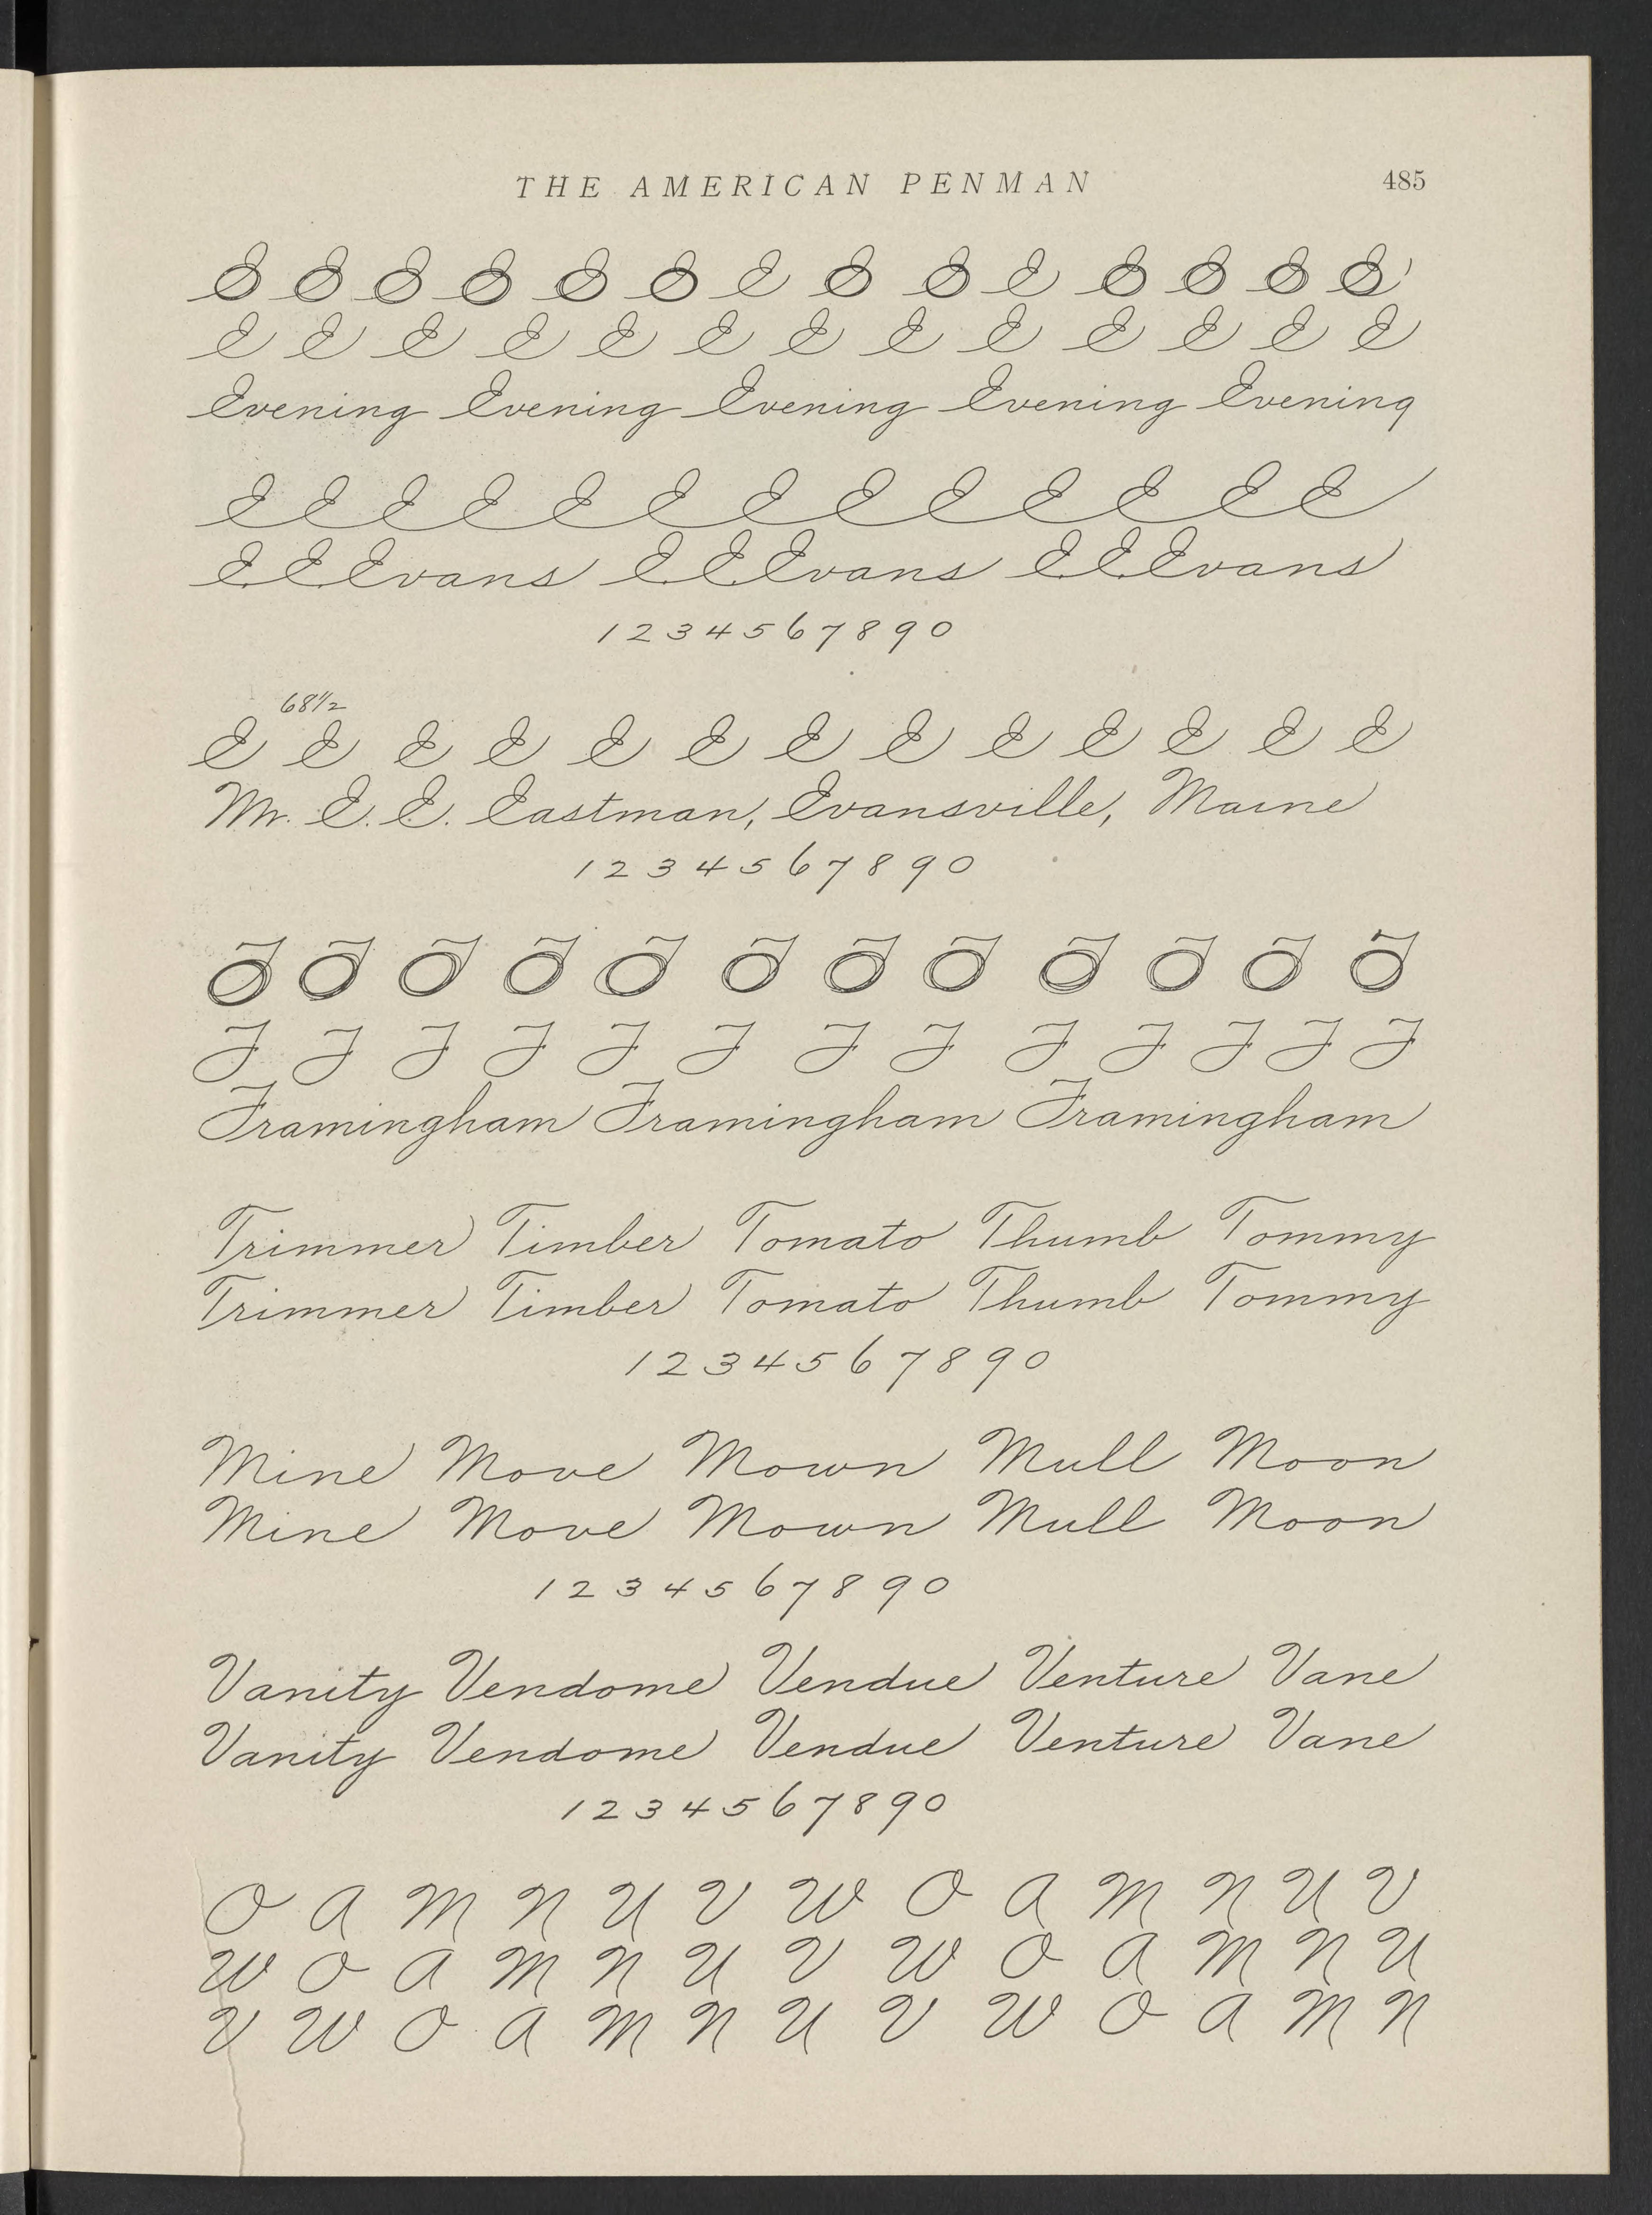 THE AMERICAN PENMAN 485
E E E E E E E E E E E E E E
E E E E E E E E E E E E E
Evening Evening Evening Evening Evening
E E E E E E E E E E E E E
E E Evans E E Evans E E Evans
1 2 3 4 5 6 7 8 9 0
68½
E E E E E E E E E E E E E
Mr. E. E. Eastman, Evansville, Maine
1 2 3 4 5 6 7 8 9 0
F F F F F F F F F F F F
F F F F F F F F F F F F F
Framingham Framingham Framingham
Trimmer Timber Tomato Thumb Tommy
Trimmer Timber Tomato Thumb Tommy
1 2 3 4 5 6 7 8 9 0
Mine Move Mown Mull Moon
Mine Move Mown Mull Moon
1 2 3 4 5 6 7 8 9 0
Vanity Vendome Vendue Venture Vane
Vanity Vendome Vendue Venture Vane
1 2 3 4 5 6 7 8 9 0
O A M N U V W O A M N U V
W O A M N U V W O A M N U
V W O A M N U V W O A M N